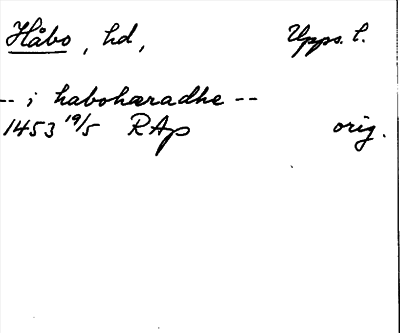 Håbo, hd, Upps. l.
-- i haboharadhe --
1453 19/5 RAp orig.